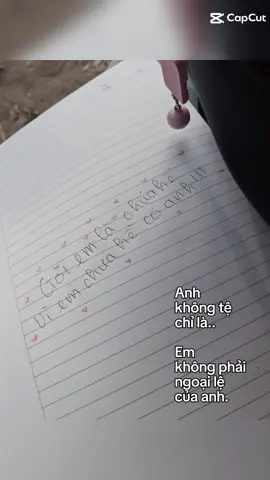 CapCut
Gọi em là chúa hề
Vì em chưa hề có anh!!!
Anh
không tệ
chỉ là..
Em
không phải
ngoại lệ
của anh.